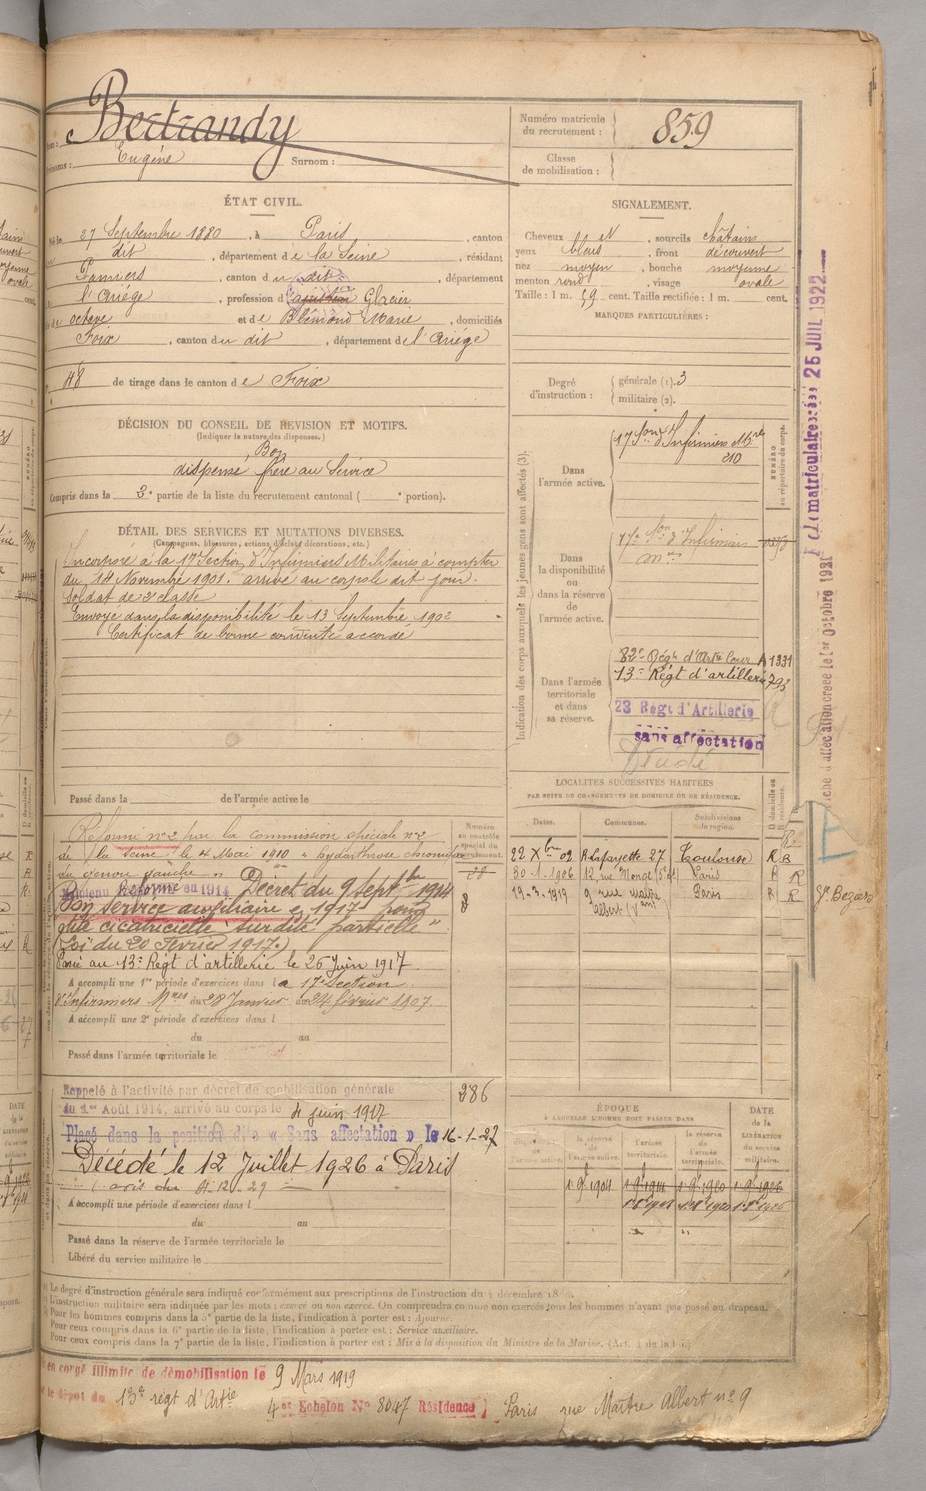 Bertrandy
Eugène
Surnom :
Numéro matricule du recrutement :
859
Classe de mobilisation :
ÉTAT CIVIL.
Né le 27 Septembre 1880, à Paris, canton
du dit, département de la Seine, résidant
Pamiers, canton du dit, département
l'Ariége, profession d Glacier
octave et de Blémond Marie, domiciliés
Foix, canton du dit, département de l'Ariége
48 de tirage dans le canton de Foix
SIGNALEMENT.
Cheveux , sourcils châtains
yeux bleus, front découvert
nez moyen, bouche moyenne
menton rond, visage ovale
Taille : 1 m. 59 cent. Taille rectifiée : 1 m. cent.
MARQUES PARTICULIÈRES :
Degré d'instruction :
générale (1). 3
militaire (2).
DÉCISION DU CONSEIL DE REVISION ET MOTIFS.
(Indiquer la nature des dispenses.)
Bon
dispensé frère au Service
Compris dans la 3e partie de la liste du recrutement cantonal ( e portion).
DÉTAIL DES SERVICES ET MUTATIONS DIVERSES.
(Campagnes, blessures, actions d'éclat, décorations, etc.)
Incorporé à la 17e Section d'Infirmiers Militaires à compter
du 14 Novembre 1901. arrivé au corps le dit jour.
Soldat de 2e classe
Envoyé dans la disponibilité le 13 Septembre 1902
Certificat de bonne conduite accordé
Passé dans la de l'armée active le
Indication des corps auxquels les jeunes gens sont affectés (3).
Dans l'armée active.
17e Son d'Infirmiers Mres
210
Dans la disponibilité ou dans la réserve de l'armée active.
17e Son d'Infirmiers
Dans l'armée territoriale et dans sa réserve.
82e Régt d'Artie Lour A 1331
13e Régt d'artillerie 793
23 Régt d'Artillerie
sans affectation
Décédé
Fiche d'affectation créée le 1er Octobre 1921
25 JUIL 1922
LOCALITÉS SUCCESSIVES HABITÉES
PAR SUITE DE CHANGEMENTS DE DOMICILE OU DE RÉSIDENCE.
Dates. Communes. Subdivisions de région. D. domicile ou R. résidence.
22 Xbre 02 R Lafayette 27 Toulouse R
30-1-1906 12 rue Monge (5e) Paris R
19-3-1919 9 rue maître albert (Ve) Paris R
Gt Beziers
Numéro au contrôle spécial du recrutement.
Réformé no 2 par la commission spéciale no 2
de la Seine le 4 Mai 1910 "hydarthrose chronique
du genou gauche"
Maintenu Réformé en 1914 Décret du 9 Septbre 1914
Bon service auxiliaire en 1917 pour
otite cicatricielle, surdité partielle"
(Loi du 20 Février 1917.)
Passé au 13e Régt d'artillerie le 26 Juin 1917
A accompli une 1re période d'exercices dans la 17e Section
d'Infirmiers Mres du 28 Janvier au 24 février 1907.
A accompli une 2e période d'exercices dans l
du au
Passé dans l'armée territoriale le
Rappelé à l'activité par décret de mobilisation générale
du 1er Août 1914, arrivé au corps le 4 juin 1917
286
Placé dans la position dite « Sans affectation » le 16-1-27
Décédé le 12 Juillet 1926 à Paris
(avis du 4-12-29
A accompli une période d'exercices dans l
du au
Passé dans la réserve de l'armée territoriale le
Libéré du service militaire le
ÉPOQUE
A LAQUELLE L'HOMME DOIT PASSER DANS
la réserve de l'armée active. l'armée territoriale. la réserve de l'armée territoriale.
DATE de la LIBÉRATION du service militaire.
1-9bre 1904 1-9bre 1914 1-9bre 1920 1-9bre 1926
Le degré d'instruction générale sera indiqué conformément aux prescriptions de l'instruction du 4 décembre
L'instruction militaire sera indiquée par les mots : exercé ou non exercé. On comprendra comme non exercés tous les hommes n'ayant pas passé au drapeau.
Pour les hommes compris dans la 5e partie de la liste, l'indication à porter est : Ajourné.
Pour ceux compris dans la 6e partie de la liste, l'indication à porter est : Service auxiliaire.
Pour ceux compris dans la 7e partie de la liste, l'indication à porter est : Mis à la disposition du Ministre de la Marine. (Art. 4 de la loi.)
en congé illimité de démobilisation le 9 Mars 1919
le dépôt du 13e régt d'Artie 4e Echelon No 8047 Résidence) Paris rue Maître Albert no 9